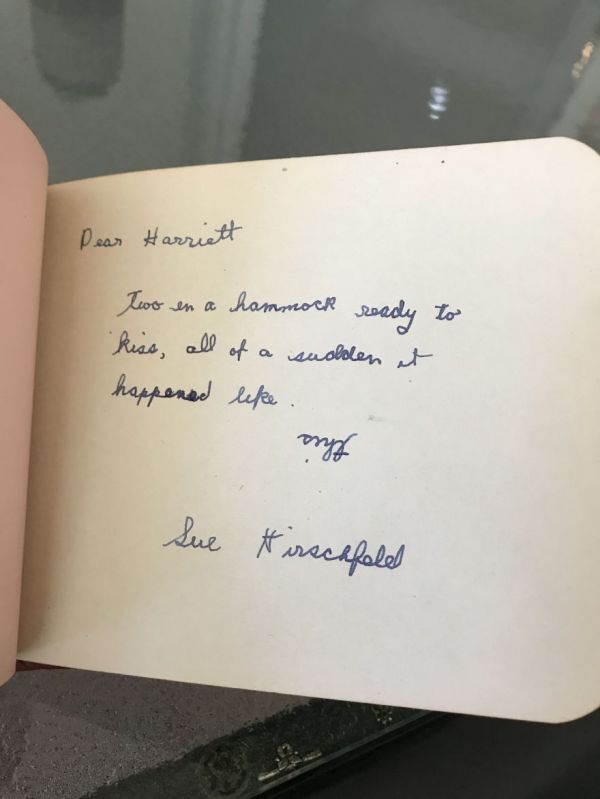 Dear Harriett
Two in a hammock ready to
kiss, all of a sudden it
happened like.
this
Sue Hirschfeld